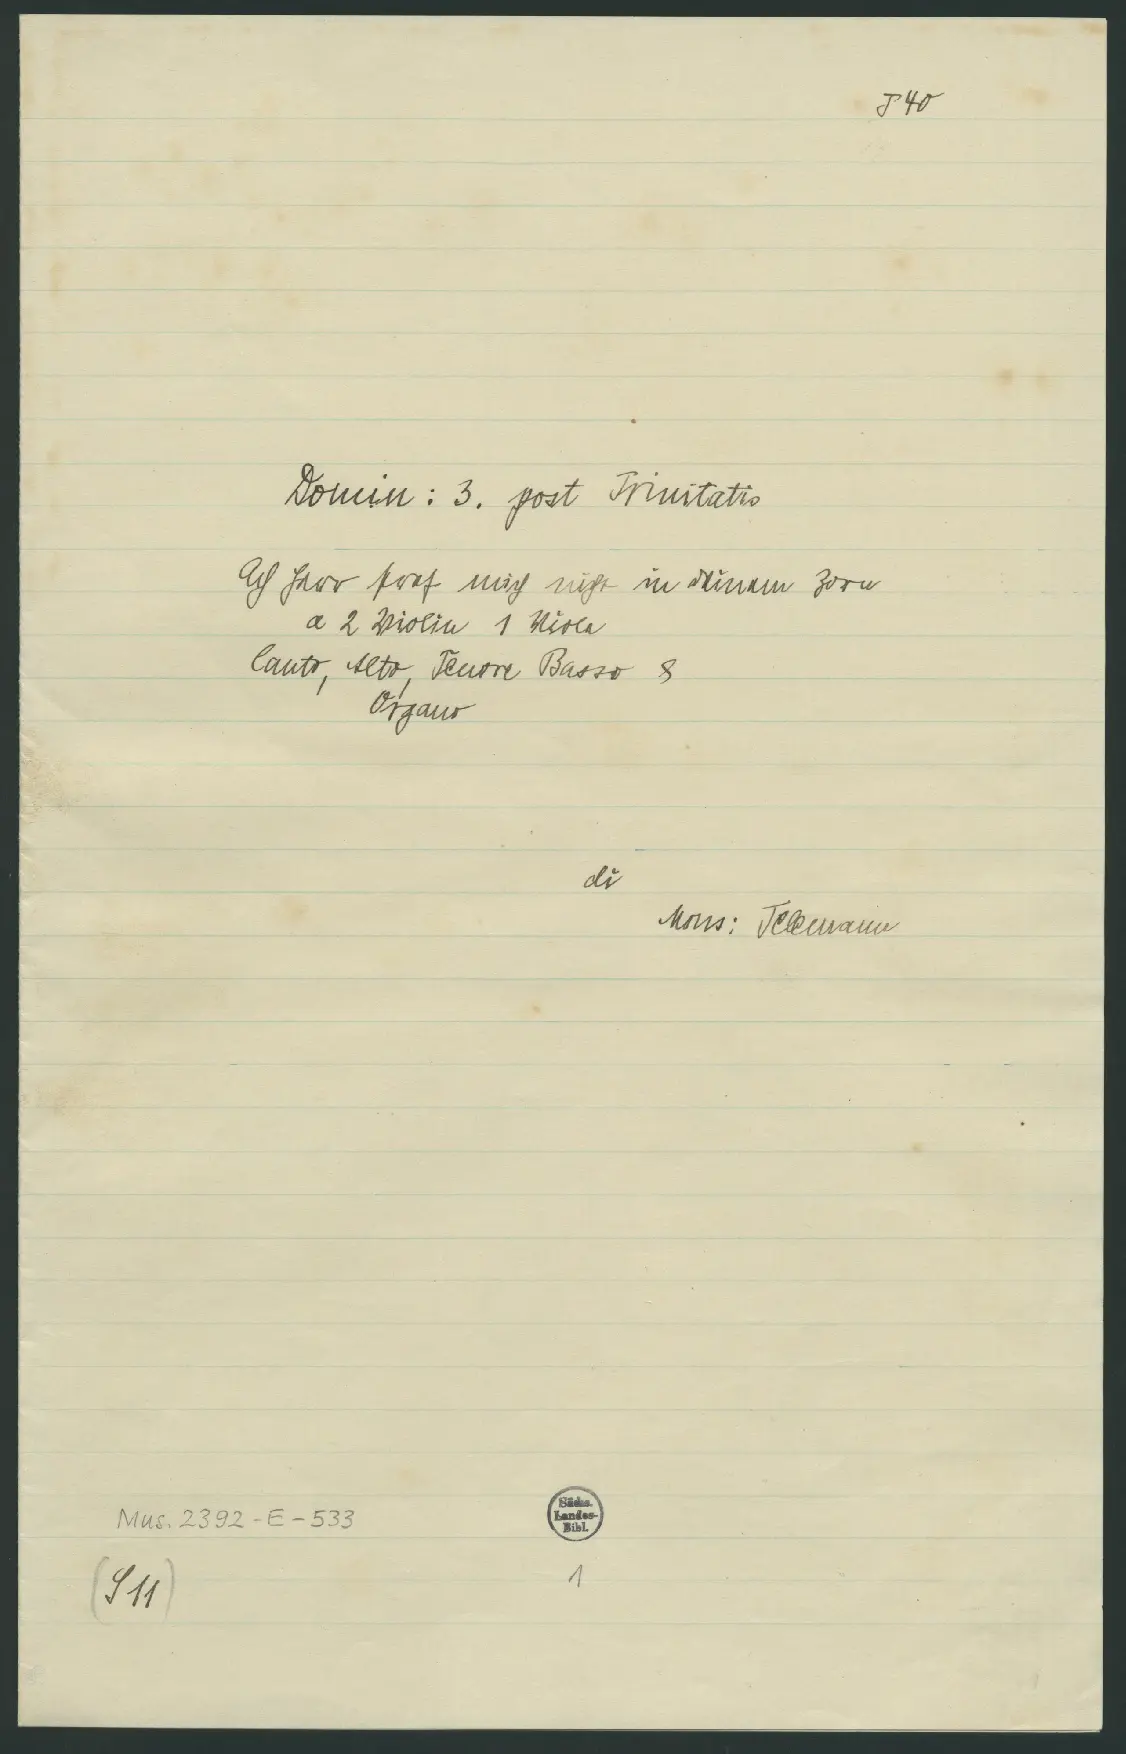 J 40
Domin: 3. post Trinitatis
Ach Herr straf mich nicht in deinem Zorn
a 2 Violin 1 Viola
Canto, Alto, Tenore Basso &
Organo
di
Mons: Telemann
Mus. 2392-E-533
Sächs.
Landes-
Bibl.
(S 11)
1